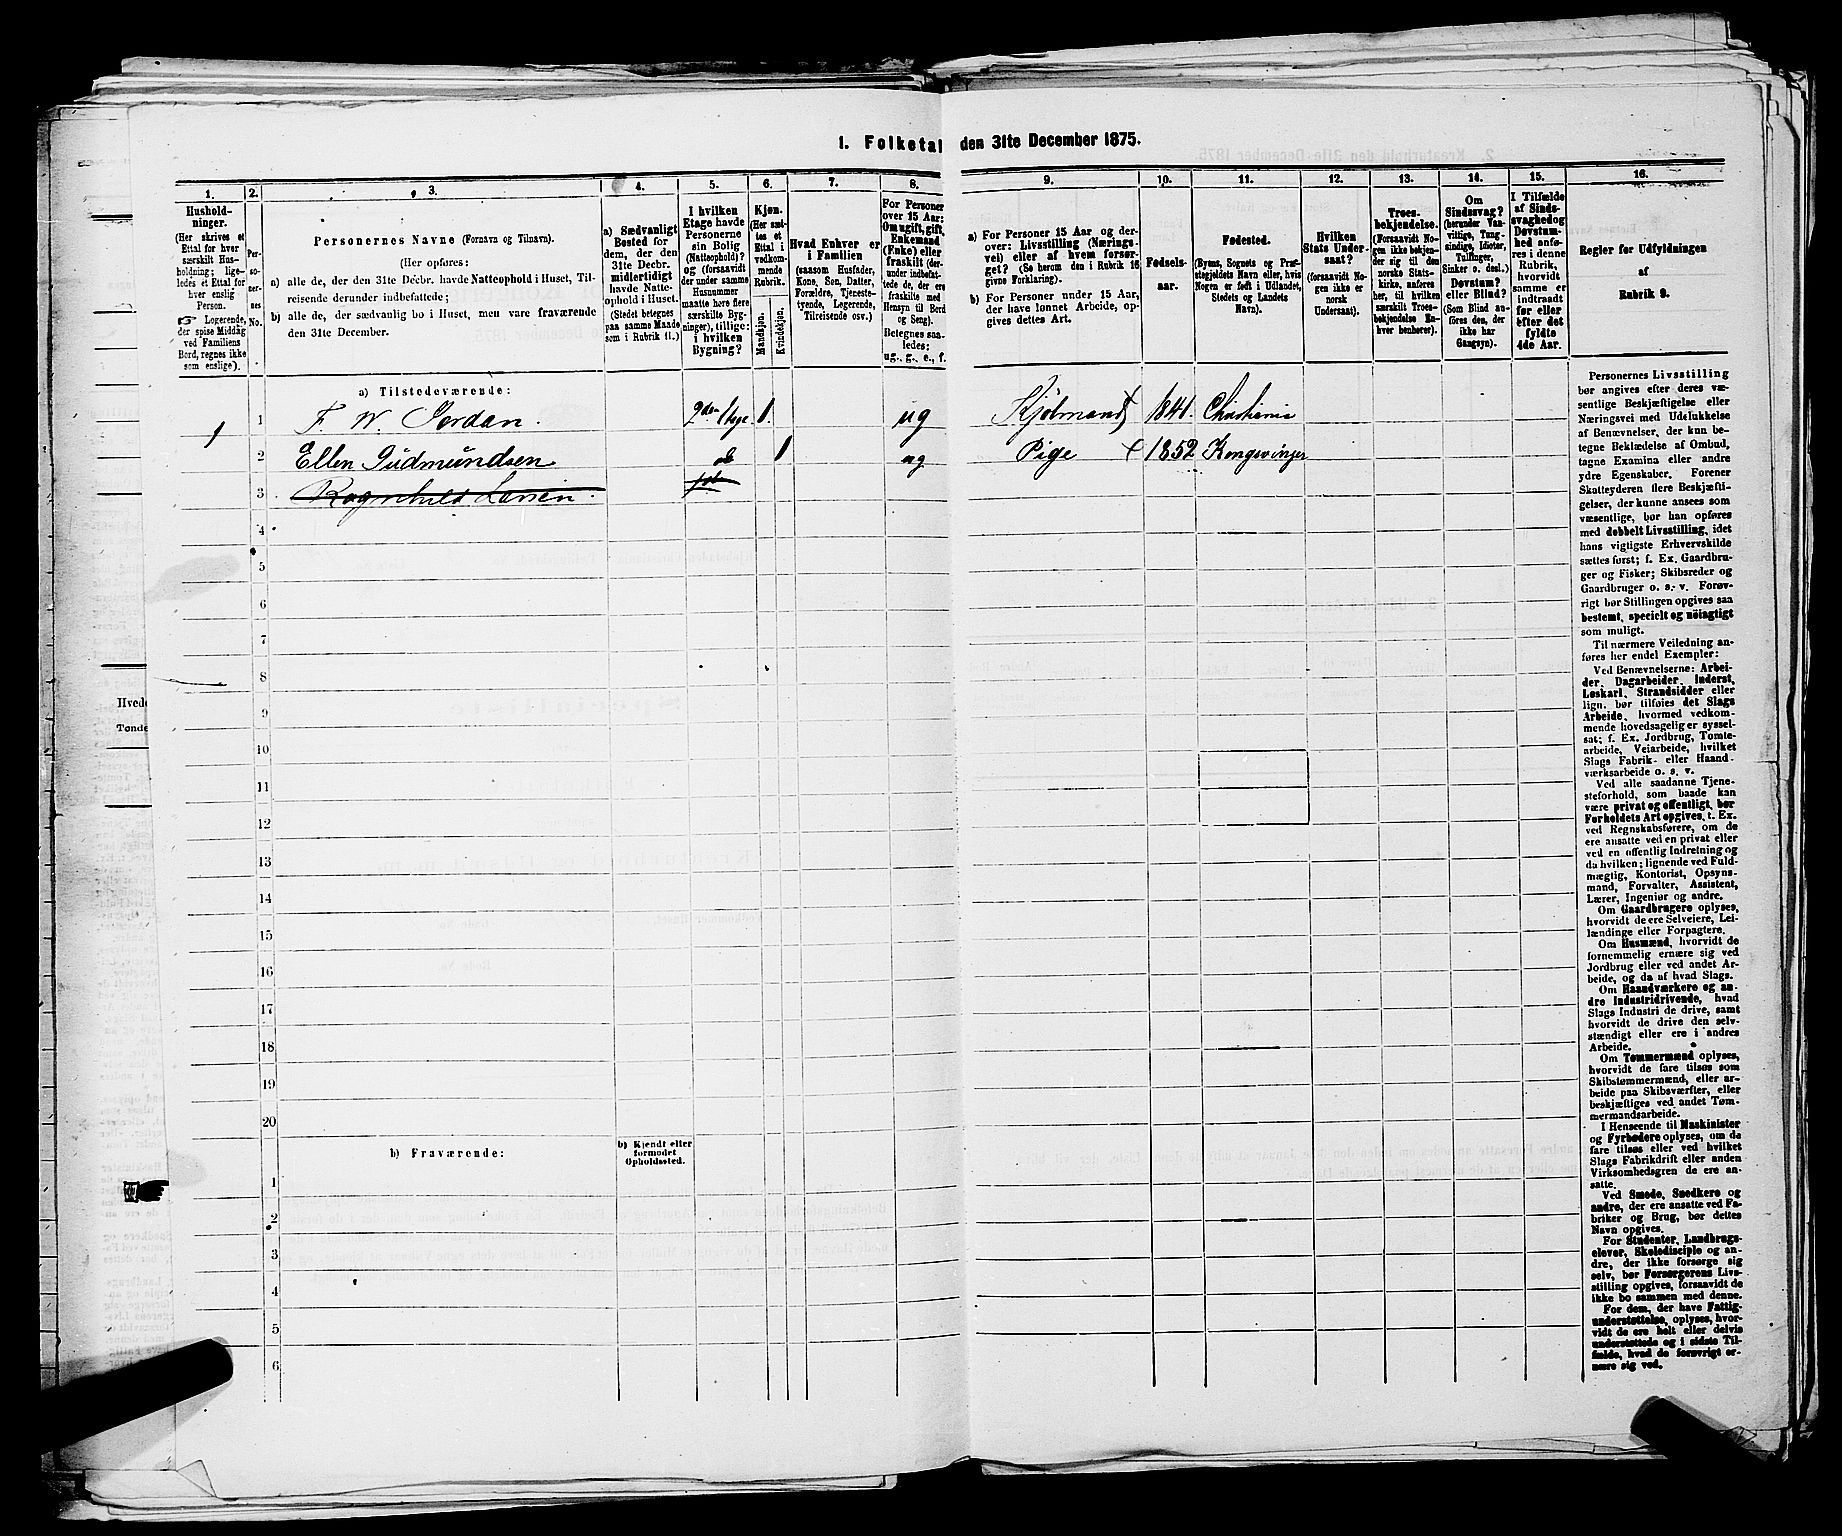 1. Folketal den 31te December 1875.
1. 2. 3. 4. 5. 6. 7. 8. 9. 10. 11. 12. 13. 14. 15. 16.
Hushold-
ninger.
(Her skrives et
Ettal for hver
særskilt Hus-
holdning; lige-
ledes et Ettal
for hver enslig
Person.
☞ Logerende,
der spise Middag
ved Familiens
Bord, regnes ikke
som enslige).
Per-
so-
ner-
nes
No.
Personernes Navne (Fornavn og Tilnavn).
(Her opføres:
a) alle de, der den 31te Decbr. havde Natteophold i Huset, Til-
reisende derunder indbefattede;
b) alle de, der sædvanlig bo i Huset, men vare fraværende
den 31te December.
a) Sædvanligt
Bosted for
dem, der den
31te Decbr.
midlertidigt
havde Natte-
ophold i Huset.
(Stedet betegnes
paa samme Maade
som i Rubrik 11.)
I hvilken
Etage havde
Personerne
sin Bolig
(Natteophold)?
og (forsaavidt
der under samme
Husnummer
maatte høre flere
særskilte Byg-
ninger), tillige:
i hvilken
Bygning?
Kjøn.
(Her sæt-
tes et
Ettal i
vedkom-
mende
Rubrik.
Mandkjøn.
Kvindekjøn.
Hvad Enhver er
i Familien
(saasom Husfader,
Kone, Søn, Datter,
Forældre, Tjeneste-
tyende, Logerende,
Tilreisende osv.)
For Personer
over 15 Aar:
Om ugift, gift,
Enkemand
(Enke) eller
fraskilt (der-
under indbefat-
tede de, der ere
fraskilte med
Hensyn til Bord
og Seng).
Betegnes saa-
ledes:
ug., g., e., f.
a) For Personer 15 Aar og der-
over: Livsstilling (Nærings-
vei) eller af hvem forsør-
get? (Se herom den i Rubrik 16
givne Forklaring).
b) For Personer under 15 Aar,
der have lønnet Arbeide, op-
gives dettes Art.
Fødsels-
aar.
Fødested.
(Byens, Sognets og Præ-
stegjeldets Navn eller, hvis
Nogen er født i Udlandet,
Stedets og Landets
Navn).
Hvilken
Stats Under-
saat?
(forsaavidt No-
gen ikke er
norsk
Undersaat).
Troes-
bekjendelse.
(Forsaavidt No-
gen ikke bekjen-
der sig til den
norske Stats-
kirke, anføres
her, til hvilken
særskilt Troes-
bekjendelse En-
hver benhører).
Om
Sindssvag?
(herunder Van-
vittige, Tung-
sindige, Idioter,
Tullinger,
Sinker o. desl.)
Døvstum?
eller Blind?
(Som Blind an-
føres den, der
ikke har
Gangsyn).
I Tilfælde
af Sinds-
svaghed og
Døvstum-
hed anfø-
res i denne
Rubrik,
hvorvidt
samme er
indtraadt
før eller
efter det
fyldte
4de Aar.
Regler for Udfyldningen
af
Rubrik 9.
a) Tilstedeværende:
1 1 F. W. Jordan. 2den Etage 1. ug Kjøbmand 1841. Christiania
2 Ellen Gudmundsen do 1 ug Pige 1852 Kongsvinger
3 Ragnhild Larsen.
4
5
6
7
8
9
10
11
12
13
14
15
16
17
18
19
20
b) Fraværende:
b) Kjendt eller
formodet
Opholdssted.
1
2
3
4
5
6
Personernes Livsstilling
bør angives efter deres væ-
sentlige Beskjæftigelse eller
Næringsvei med Udelukkelse
af Benævnelser, der kun be-
tegne Beklædelse af Ombud,
tagne Examina eller andre
ydre Egenskaber. Forener
Skatteyderen flere Beskjæfti-
gelser, der kunne ansees som
væsentlige, bør han opføres
med dobbelt Livsstilling, idet
hans vigtigste Erhvervskilde
sættes først; f. Ex. Gaardbru-
ger og Fisker; Skibsreder og
Gaardbruger o. s. v. Forøv-
rigt bør Stillingen opgives saa
bestemt, specielt og nöiagtigt
som muligt.
Til nærmere Veiledning an-
føres her endel Exempler:
Ved Benævnelserne: Arbei-
der, Dagarbeider, Inderst,
Løskarl, Strandsidder eller
lign. bør tilføies det Slags
Arbeide, hvormed vedkom-
mende hovedsagelig er syssel-
sat; f. Ex. Jordbrug, Tomte-
arbeide, Veiarbeide, hvilket
Slags Fabrik- eller Haand-
værksarbeide o. s. v.
Ved alle saadanne Tjene-
steforhold, som baade kan
være privat og offentligt, bør
Forholdets Art opgives, t. Ex.
ved Regnskabsførere, om de
ere ansatte ved en privat eller
ved en offentlig Indretning og
da hvilken; lignende ved Fuld-
mægtig, Kontorist, Opsyns-
mand, Forvalter, Assistent,
Lærer, Ingeniør og andre.
Om Gaardbrugere oplyses,
hvorvidt de ere Selveiere, Lei-
lændinge eller Forpagtere.
Om Husmænd, hvorvidt de
fornemmelig ernære sig ved
Jordbrug eller ved andet Ar-
beide, og da af hvad Slags.
Om Haandværkere og an-
dre Industridrivende, hvad
Slags Industri de drive, samt
hvorvidt de drive den selv-
stændigt eller ere i andres
Arbeide.
Om Tømmermænd oplyses,
hvorvidt de fare tilsøs som
Skibstømmermænd, eller ar-
beide paa Skibsværfter, eller
beskjæftiges ved andet Tøm-
mermandsarbeide.
I Henseende til Maskinister
og Fyrbødere oplyses, om de
fare tilsøs eller ved hvilket
Slags Fabrikdrift eller anden
Virksomhedsgren de ere an-
satte.
Ved Smede, Snedkere og
andre, der ere ansatte ved Fa-
briker og Brug, bør dettes
Navn opgives.
For Studenter, Landbrugs-
elever, Skoledisciple og an-
dre, der ikke forsørge sig
selv, bør Forsørgerens Livs-
stilling opgives, forsaavidt de
ikke bo sammen med denne.
For dem, der have Fattig-
understøttelse, oplyses, hvor-
vidt de ere helt eller delvis
understøttede og i sidste Til-
fælde, hvad de forøvrigt er-
nære sig ved.
Hvede
Tønde